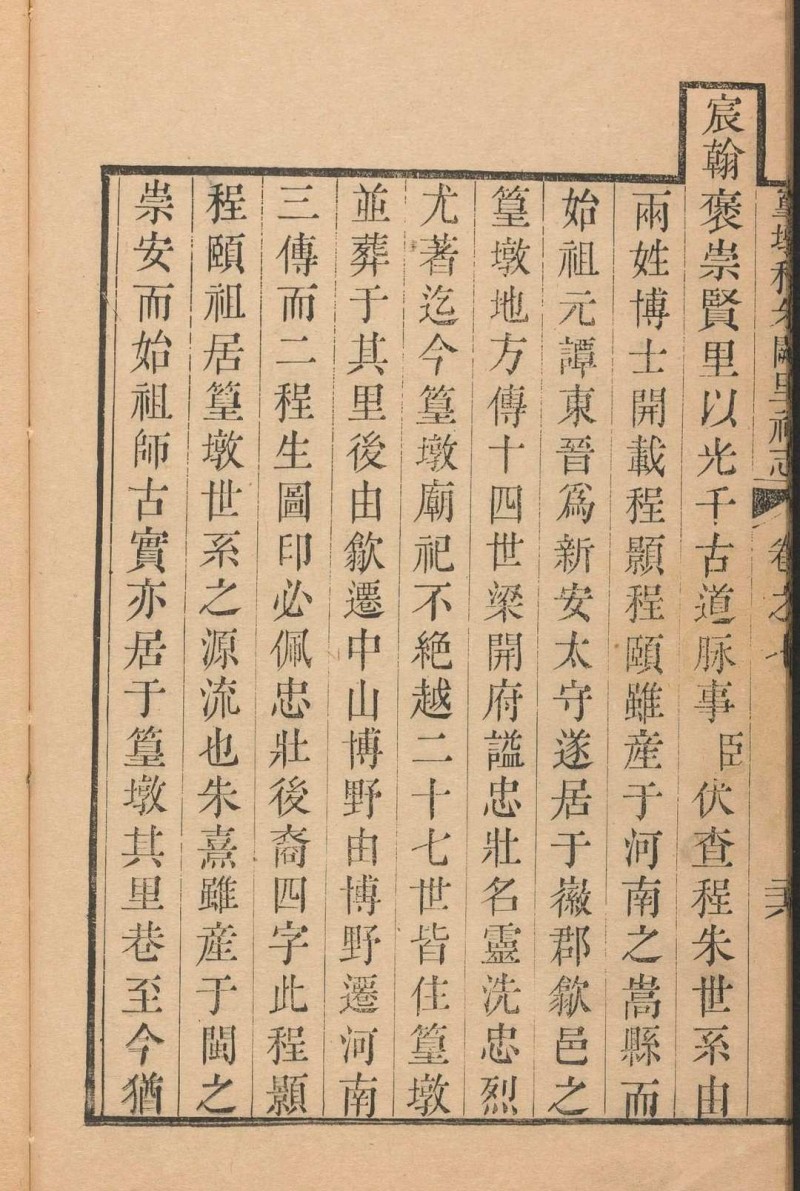 篁墩程朱闕里祠志　卷之七
宸翰褒崇賢里以光千古道脉事臣伏查程朱世系由
兩姓博士開載程顥程頤雖產于河南之嵩縣而
始祖元譚東晉爲新安太守遂居于徽郡歙邑之
篁墩地方傳十四世梁開府謚忠壯名靈洗忠烈
尤著迄今篁墩廟祀不絕越二十七世皆住篁墩
並葬于其里後由歙遷中山博野由博野遷河南
三傳而二程生圖印必佩忠壯後裔四字此程顥
程頤祖居篁墩世系之源流也朱熹雖產于閩之
崇安而始祖師古實亦居于篁墩其里巷至今猶